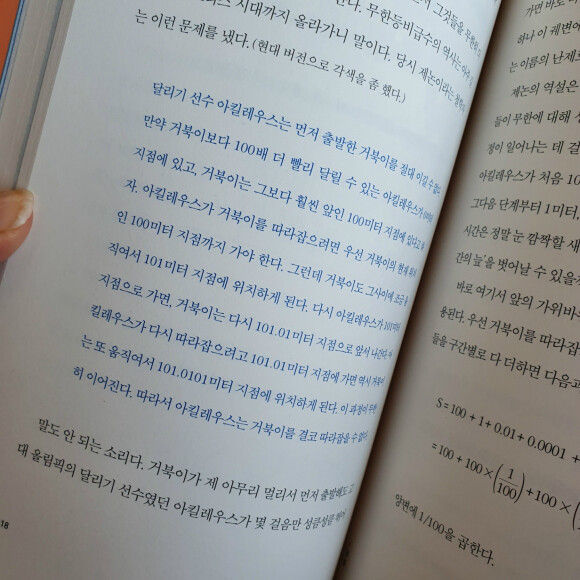 그것들을 무한히
시대까지 올라가니 말이다. 당시 제논이라는
는 이런 문제를 냈다. (현대 버전으로 각색을 좀 했다.)
달리기 선수 아킬레우스는 먼저 출발한 거북이를 절대 이길 수 없다.
만약 거북이보다 100배 더 빨리 달릴 수 있는 아킬레우스가
지점에 있고, 거북이는 그보다 훨씬 앞인 100미터 지점에 있다고 하
자. 아킬레우스가 거북이를 따라잡으려면 우선 거북이의 현재 위치
인 100미터 지점까지 가야 한다. 그런데 거북이도 그사이에 조금 움
직여서 101미터 지점에 위치하게 된다. 다시 아킬레우스가 101미터
지점으로 가면, 거북이는 다시 101.01미터 지점으로 앞서 나간다. 아
킬레우스가 다시 따라잡으려고 101.01미터 지점에 가면 역시 거북이
는 또 움직여서 101.0101미터 지점에 위치하게 된다. 이 과정이 무한
히 이어진다. 따라서 아킬레우스는 거북이를 결코 따라잡을 수 없다.
말도 안 되는 소리다. 거북이가 제 아무리 멀리서 먼저 출발해도 고
대 올림픽의 달리기 선수였던 아킬레우스가 몇 걸음만 성큼성큼
18
가면 바로
하나 이 궤변에
는 이름의 난제로
제논의 역설은
들이 무한에 대해
정이 일어나는 데 걸
아킬레우스가 처음 10
그다음 단계부터 1미터,
시간은 정말 눈 깜짝할 새
간의 늪'을 벗어날 수 있을까
바로 여기서 앞의 가위바위
용된다. 우선 거북이를 따라잡
들을 구간별로 다 더하면 다음과
S = 100 + 1 + 0.01 + 0.0001 +
= 100 + 100 × (1/100) + 100 × (1
양변에 1/100을 곱한다.